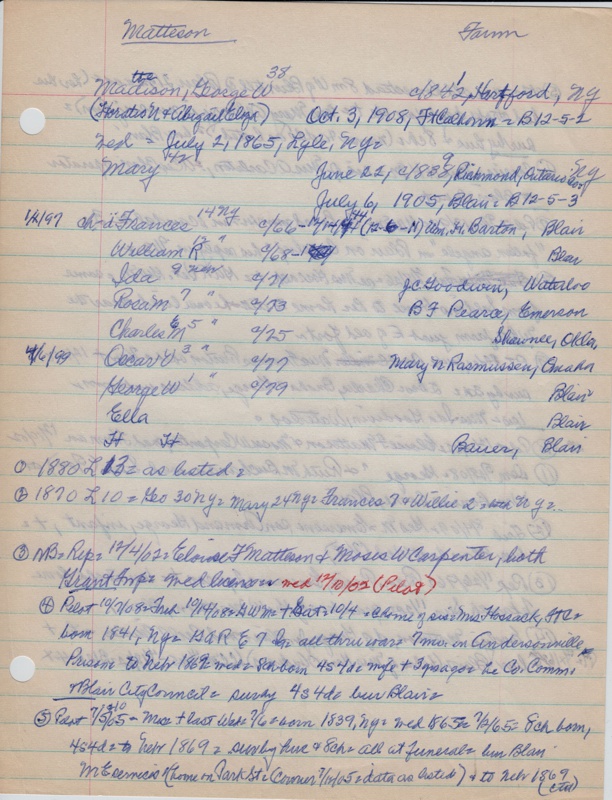 Matteson Farm
Mattison, George W 38 c/842, Hartford, NY
(Horatio N & Abigail) Oct. 3, 1908, Ft Calhoun = B12-5-2
wed = July 2, 1865, Lyle, NY=
Mary 42 June 22, c/838, Richmond, Ontario Co, NY
July 6, 1905, Blair = B-12-5-3
1/2/97 ch = d Frances 14 NY c/66 - Wm. H. Barton, Blair
William R 12 " c/68 - Blair
Ida 9 c/71 J C Goodwin, Waterloo
Rosa M 7 " c/73 B F Pearce, Emerson
Charles E M 5 " c/75 Shawnee, Okla.
4/6/99 Oscar V 3 " c/77 Mary N Rasmussen, Omaha
George W 1 " c/79 Blair
Ella Blair
H H Bauer, Blair
① 1880 L 13 = as listed =
② 1870 L 10 = Geo 30 NY = Mary 24 NY = Frances 7 & Willie 2 = both NY =
③ NB = Rep = 12/4/02 = Eloise F Matteson & Moses W Carpenter, both
Grant Twp = wed license = wed 12/10/02 (Pilot)
④ Pilot 10/7/08 = Trib 10/14/08 = G W M = + Sat = 10/4 = home of sis = Mrs Hossack, Ft C =
born 1841, NY = all thru war = 7 mo. in Andersonville
Prisoner = to Nebr 1869 = wed = 8 ch born 4s 4d = wife + 3 yrs ago = he Co. Comm =
& Blair City Council = survby 4s 4d = bur Blair =
⑤ Pilot 7/13/05 = Mrs + last Wed = 7/6 = born 1839, NY = wed 1865 = 7/2/65 = 8 ch born,
4s 4d = to Nebr 1869 = survby huc & 8 ch = all at funeral = bur Blair
M E services (home on Park St = Courier 7/12/05 = data as listed) & to Nebr 1869